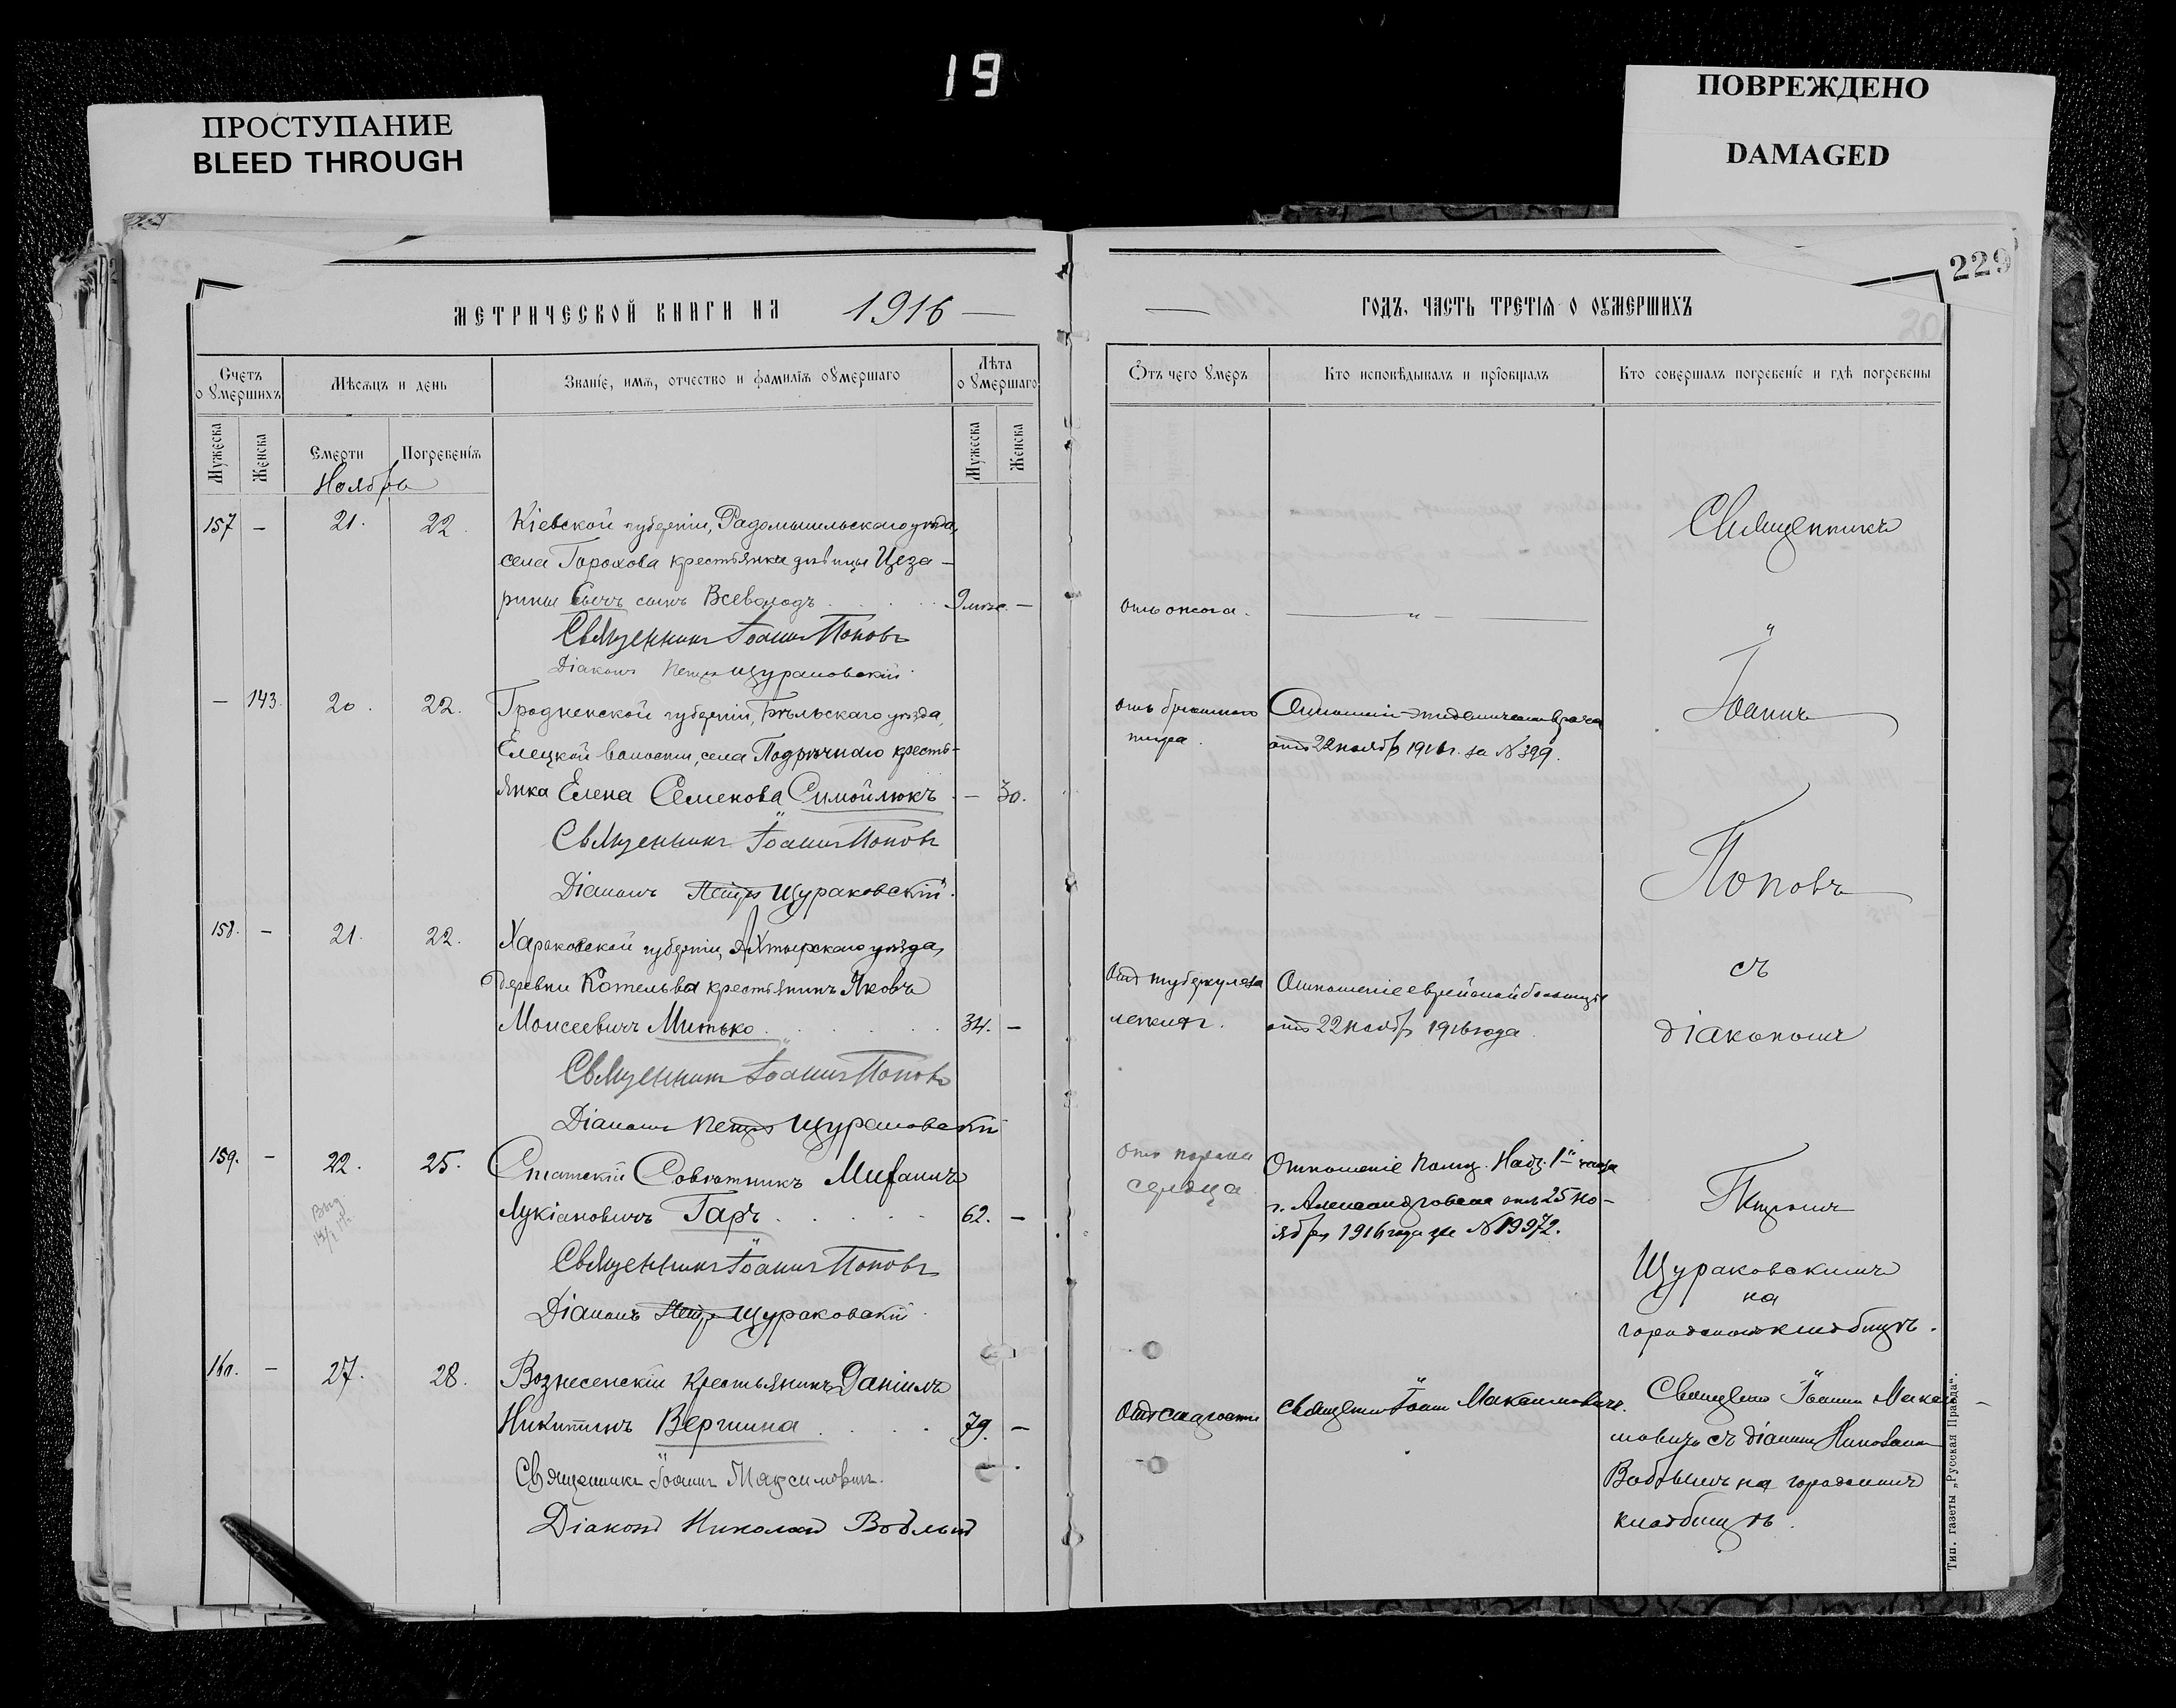 19
ПРОСТУПАНИЕ
BLEED THROUGH
ПОВРЕЖДЕНО
DAMAGED
229
МЕТРИЧЕСКОЙ КНИГИ НА 1916
Счетъ о умершихъ
Мужеска
Женска
Мѣсяцъ и день
Смерти
Погребенія
Званіе, имя, отчество и фамилія умершаго
Лѣта о умершаго
Мужеска
Женска
Ноябрь
157 – 21. 22
Кіевской губерніи, Радомышльскаго уѣзда,
села Горохова крестьянки дѣвицы Цеза-
рины Сычъ сынъ Всеволодъ 9 мѣс. –
Священникъ Іоаннъ Поповъ
Діаконъ Петръ Щураковскій
– 143. 20. 22.
Гродненской губерніи, Бѣльскаго уѣзда,
Елецкой волости, села Подрѣчнаго кресть-
янка Елена Семенова Симойлюкъ – 30.
Священникъ Іоаннъ Поповъ
Діаконъ Петръ Щураковскій.
158. – 21. 22.
Харьковской губерніи, Ахтырскаго уѣзда,
деревни Котельва крестьянинъ Яковъ
Моисеевичъ Митько 34. –
Священникъ Іоаннъ Поповъ
Діаконъ Петръ Щураковскій
159. – 22. 25.
Статскій Совѣтникъ Митрофанъ
Лукіановичъ Гаръ 62. –
Священникъ Іоаннъ Поповъ
Діаконъ Петръ Щураковскій
160. – 27. 28.
Вознесенскій крестьянинъ Даніилъ
Никитинъ Вершина 79. –
Священникъ Іоаннъ Максимовичъ
Діаконъ Николай
ГОДЪ, ЧАСТЬ ТРЕТІЯ О УМЕРШИХЪ
Отъ чего умеръ
Кто исповѣдывалъ и пріобщалъ
Кто совершалъ погребеніе и гдѣ погребены
отъ ожога.
отъ брюшного
тифа.
отъ 22 ноября 1916 г. за № 399.
отъ туберкулеза
легкихъ.
Отношеніе еврейской больницы
отъ 22 ноября 1916 года
отъ порока
сердца
Отношеніе Помощ. Надз. 1й части
г. Александровска отъ 25 но-
ября 1916 года за № 19972.
отъ старости
Священникъ Іоаннъ Максимовичъ.
Священникъ
Іоаннъ
Поповъ
съ
діакономъ
Петромъ
Щураковскимъ
на
городскомъ кладбищѣ.
Священникъ Іоаннъ Макси-
мовичъ съ діакономъ Николаемъ
на городскомъ
кладбищѣ.
Тип. газеты „Русская Правда“.